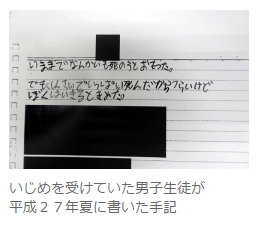 いままでなんかいも死のうとおもった。
でも、しんさいでいっぱい死んだからつらいけど
ぼくはいきるときめた。
いじめを受けていた男子生徒が
平成２７年夏に書いた手記